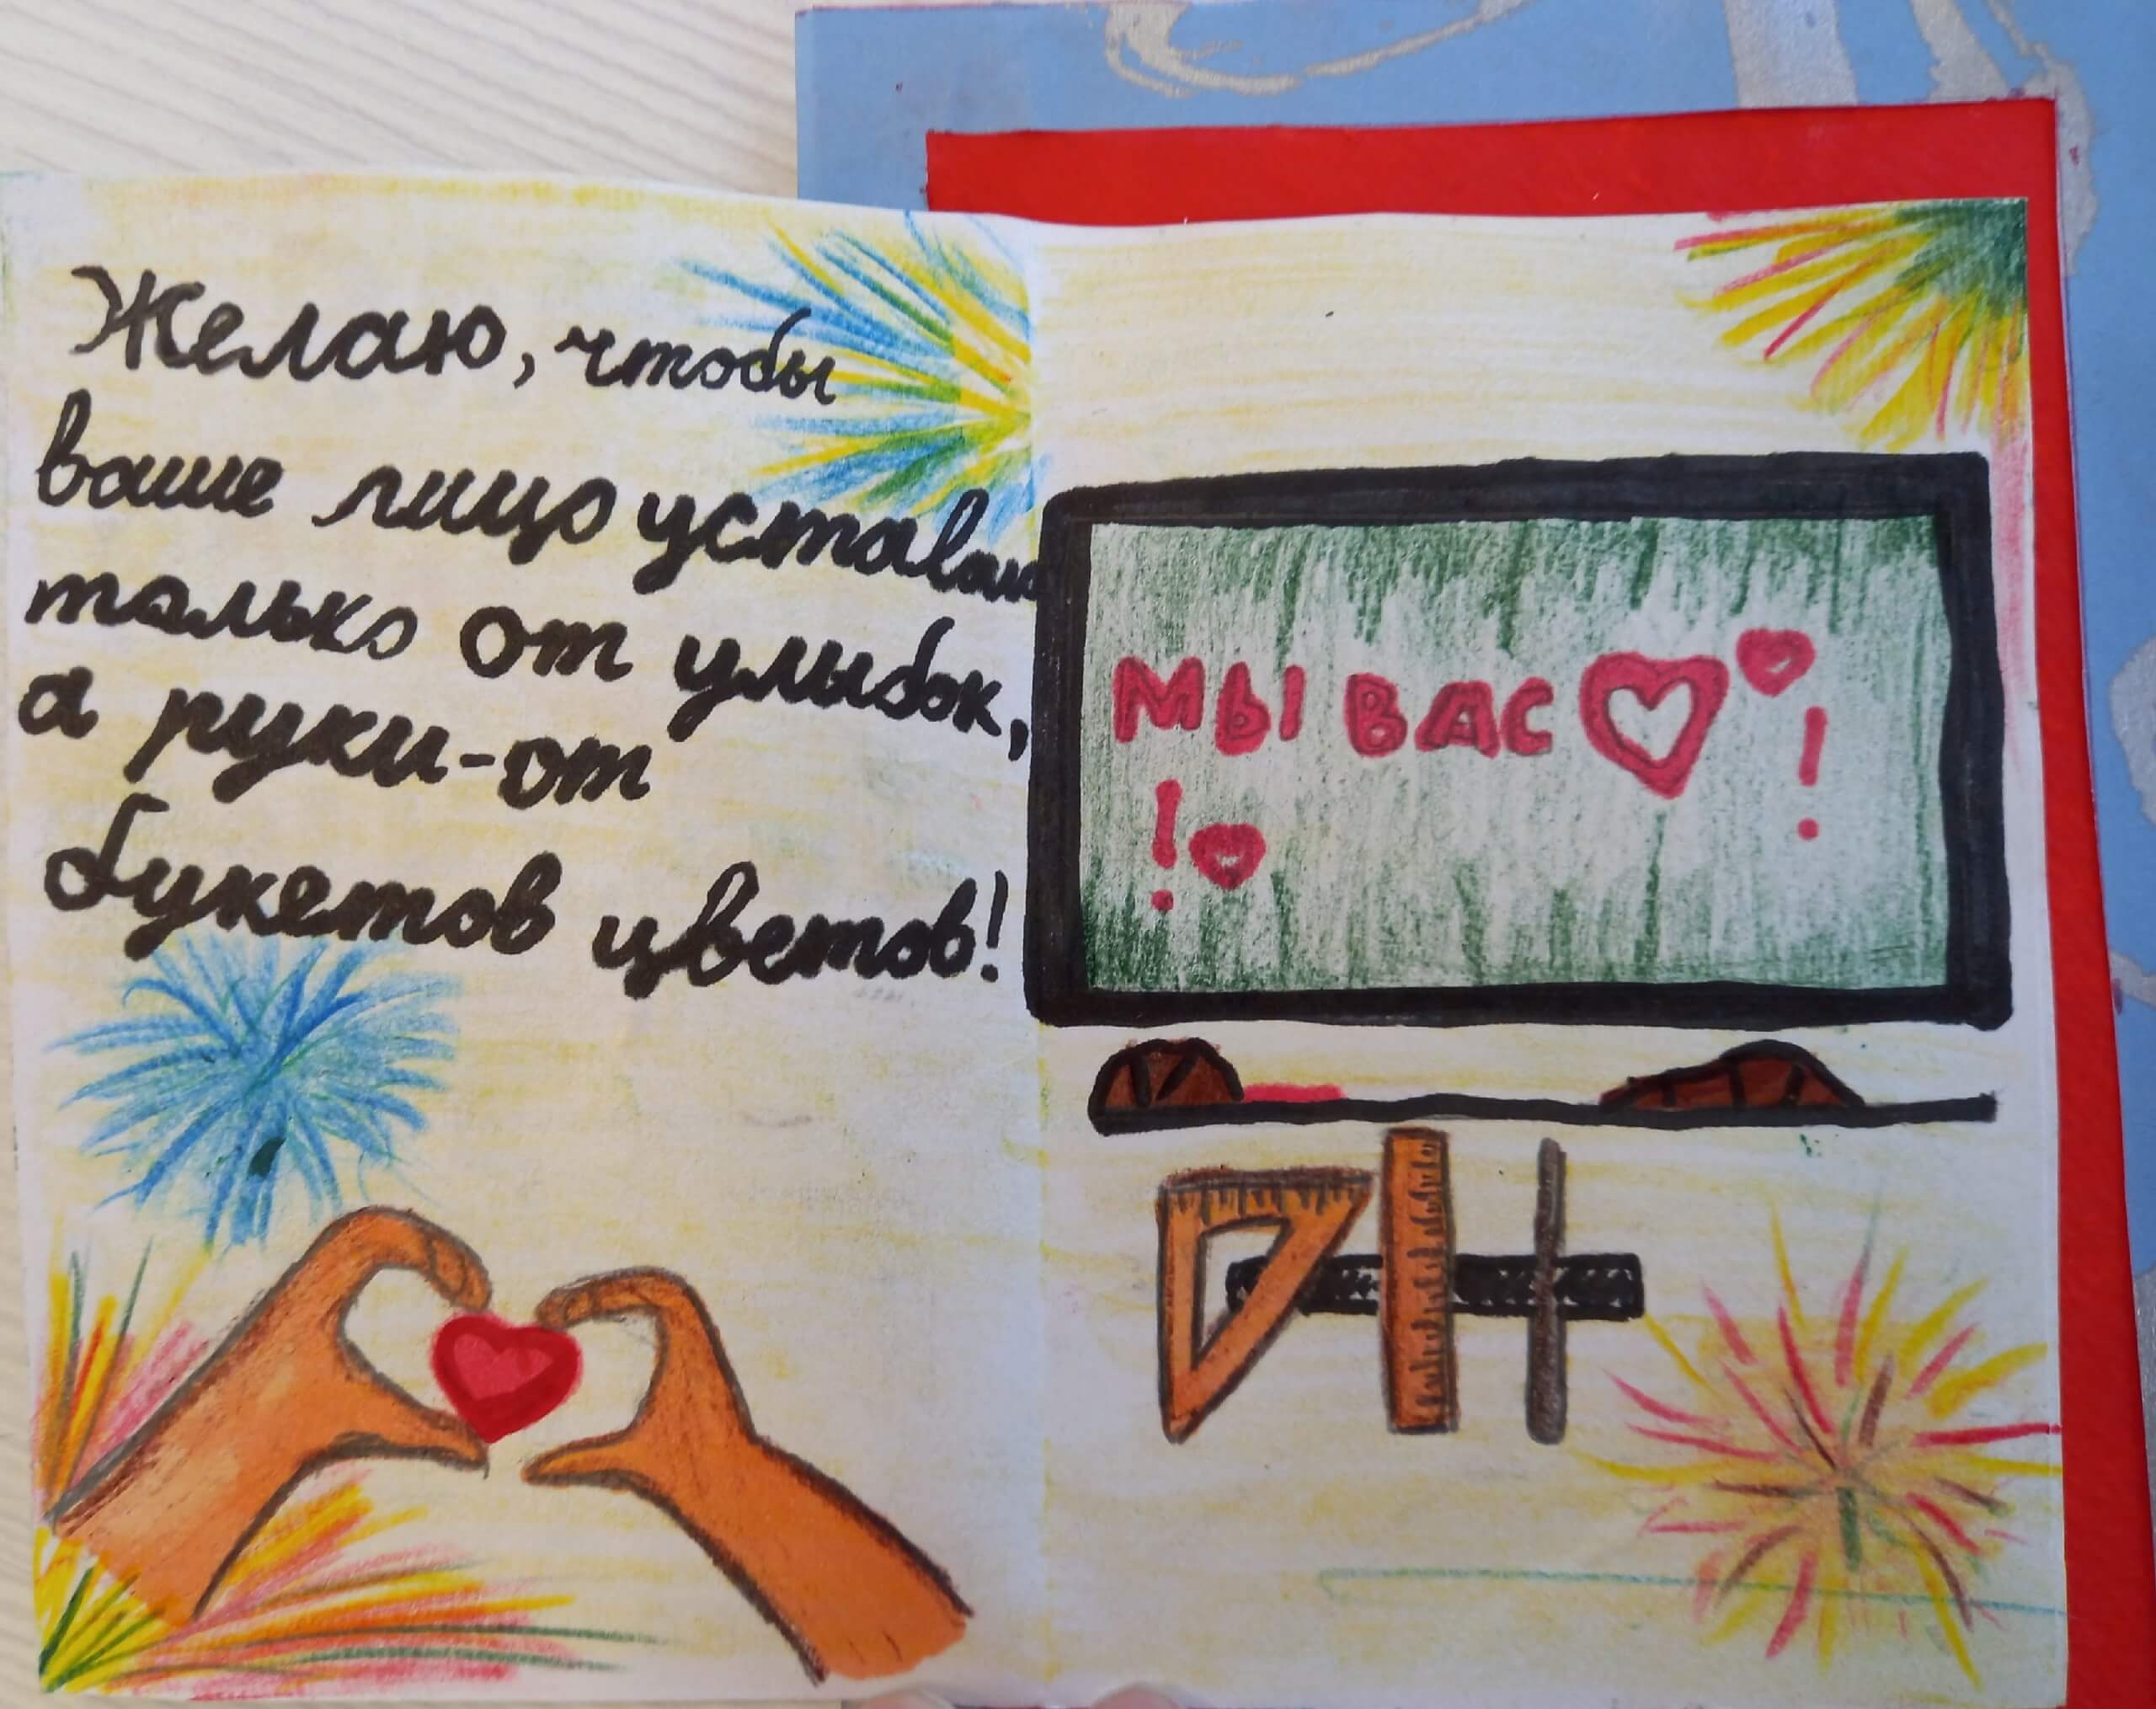 Желаю, чтобы
ваше лицо уставало
только от улыбок,
а руки-от
букетов цветов!
МЫ ВАС
!
!